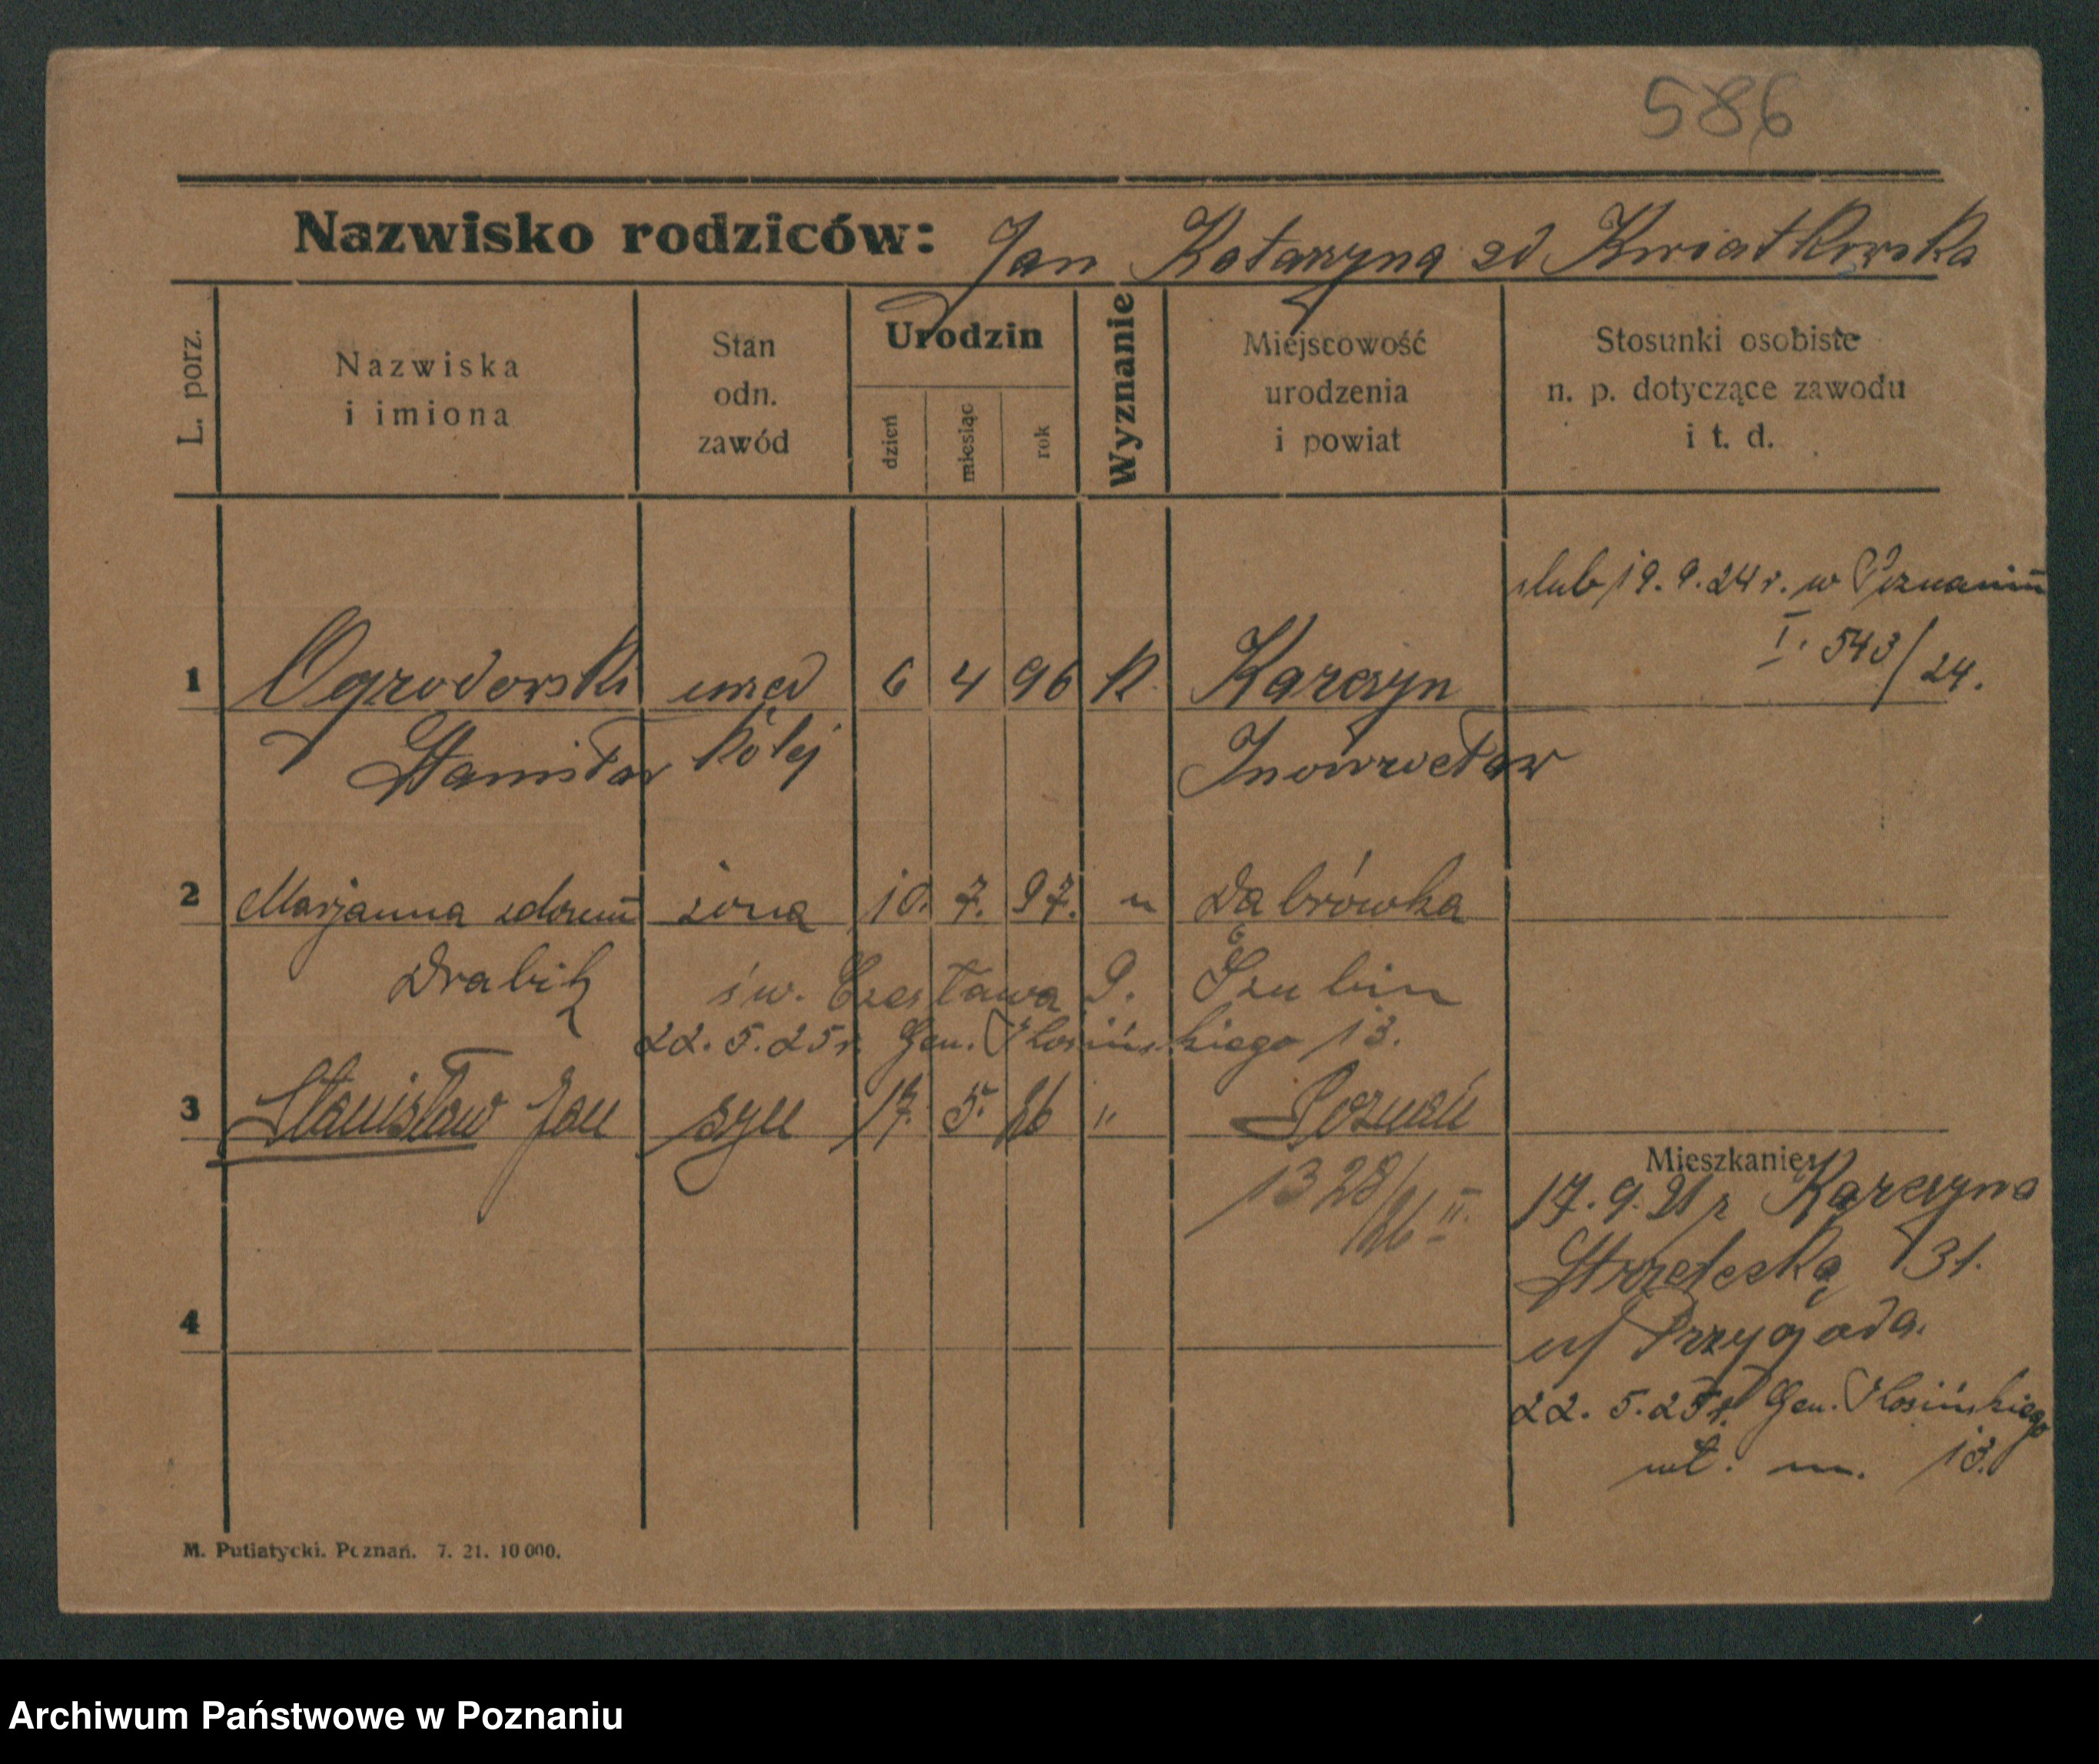 586
Nazwisko rodziców: Jan Katarzyna zd Kwiatkowska
L. porz.
Nazwiska
i imiona
Stan
odn.
zawód
Urodzin
dzień
miesiąc
rok
Wyznanie
Miejscowość
urodzenia
i powiat
Stosunki osobiste
n. p. dotyczące zawodu
i t. d.
ślub 19.9.24 r. w Poznaniu
I. 543/24.
1 Ogrodowski urzęd 6 4 96 K Karczyn
Stanisław kolej Inowrocław
2 Marjanna zdomu żona 10. 7. 97. " Dąbrówka
Drabik św. Czesława 9. Szubin
22. 5. 25 r. Gen. Kosińskiego 13.
3 Stanisław Jan syn 17. 5. 26 " Poznań
1328/26 II.
Mieszkanie:
17. 9. 21 r Karczyna
Strzelecka 31.
u/ Przygoda.
22. 5. 25 r. Gen. Kosińskiego
wł. m. 13.
4
M. Putiatycki. Poznań. 7. 21. 10 000.
Archiwum Państwowe w Poznaniu